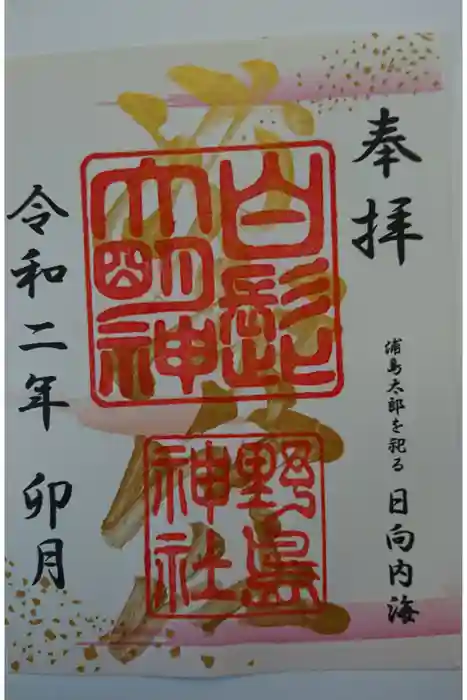 奉拝
浦島太郎を祀る 日向内海
白髭
大明神
野島
神社
令和二年 卯月